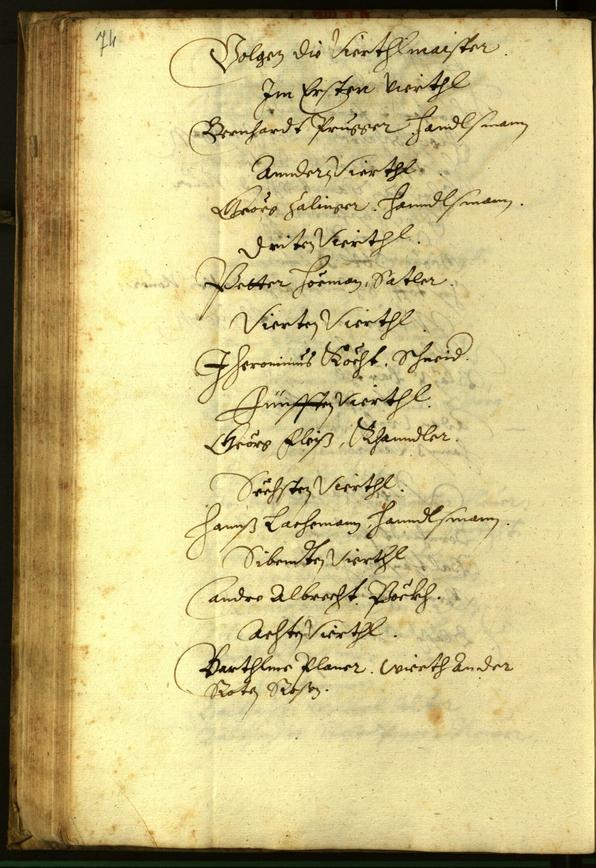 74
Volgen die Vierthlmaister.
Im Ersten Vierthl
Bernhardt Prugger Handlsmann
Anndern Vierthl.
Georg Halinger. Hanndlsmann.
Driten Vierthl.
Petter Hoëman, Satler.
Vierten Vierthl.
Jheronimus Köchl. Schneid.
Fünfften Vierthl.
Georg Pleiß, Khanndler.
Sechsten Vierthl.
Hannß Lachemann. Hanndlsmann.
Sibendten Vierthl
Andre Albrecht. Pöckh.
Achten Vierthl.
Barthlme Planer. Wierth an der
Roten Rosen.